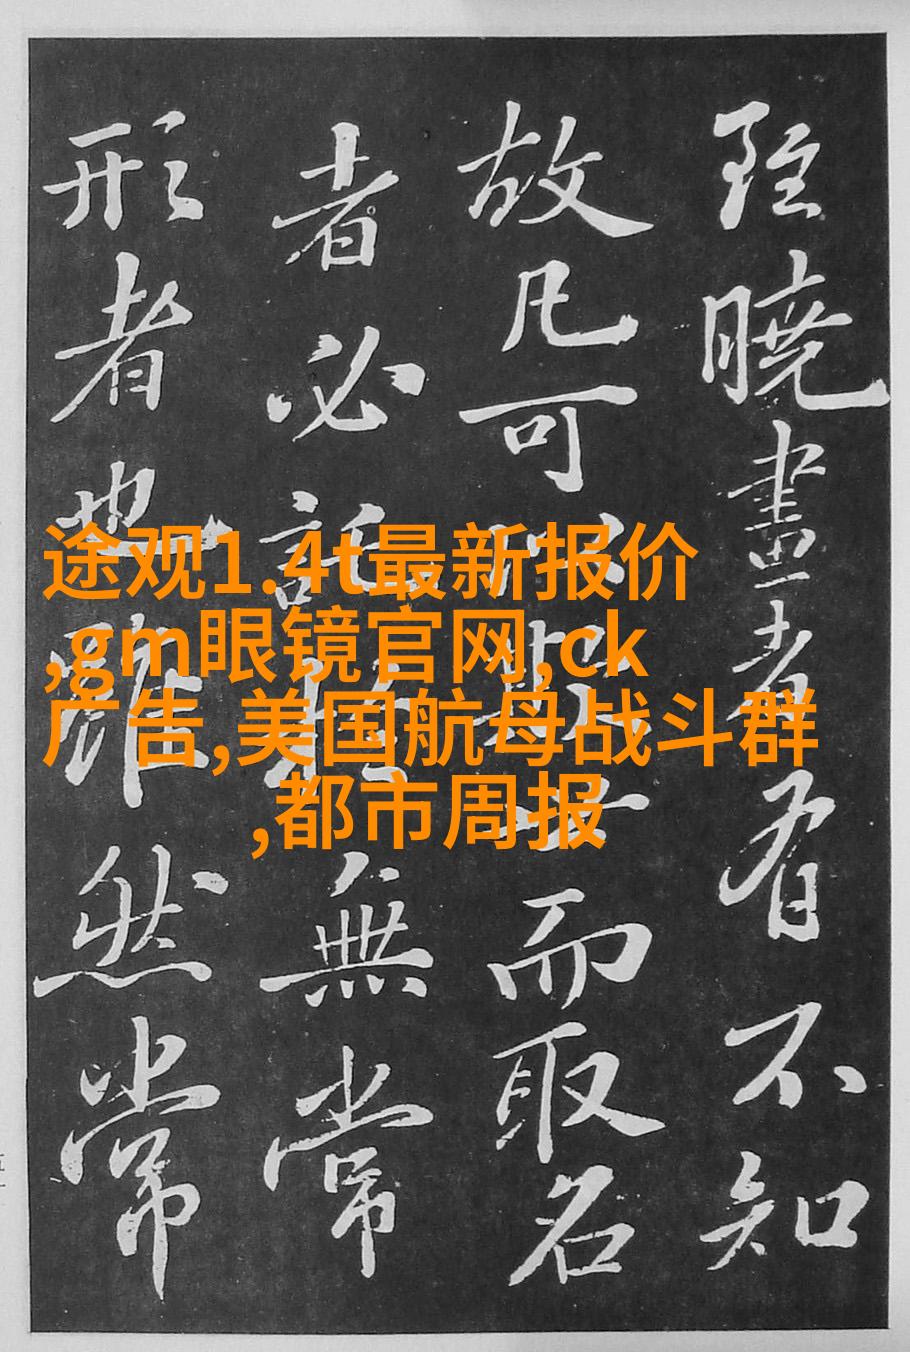 雖曉畫者有不知
故凡可以欺世而取名
者必託於無常
形者也雖然常
途观1.4t最新报价
,gm眼镜官网,ck
广告,美国航母战斗群
,都市周报